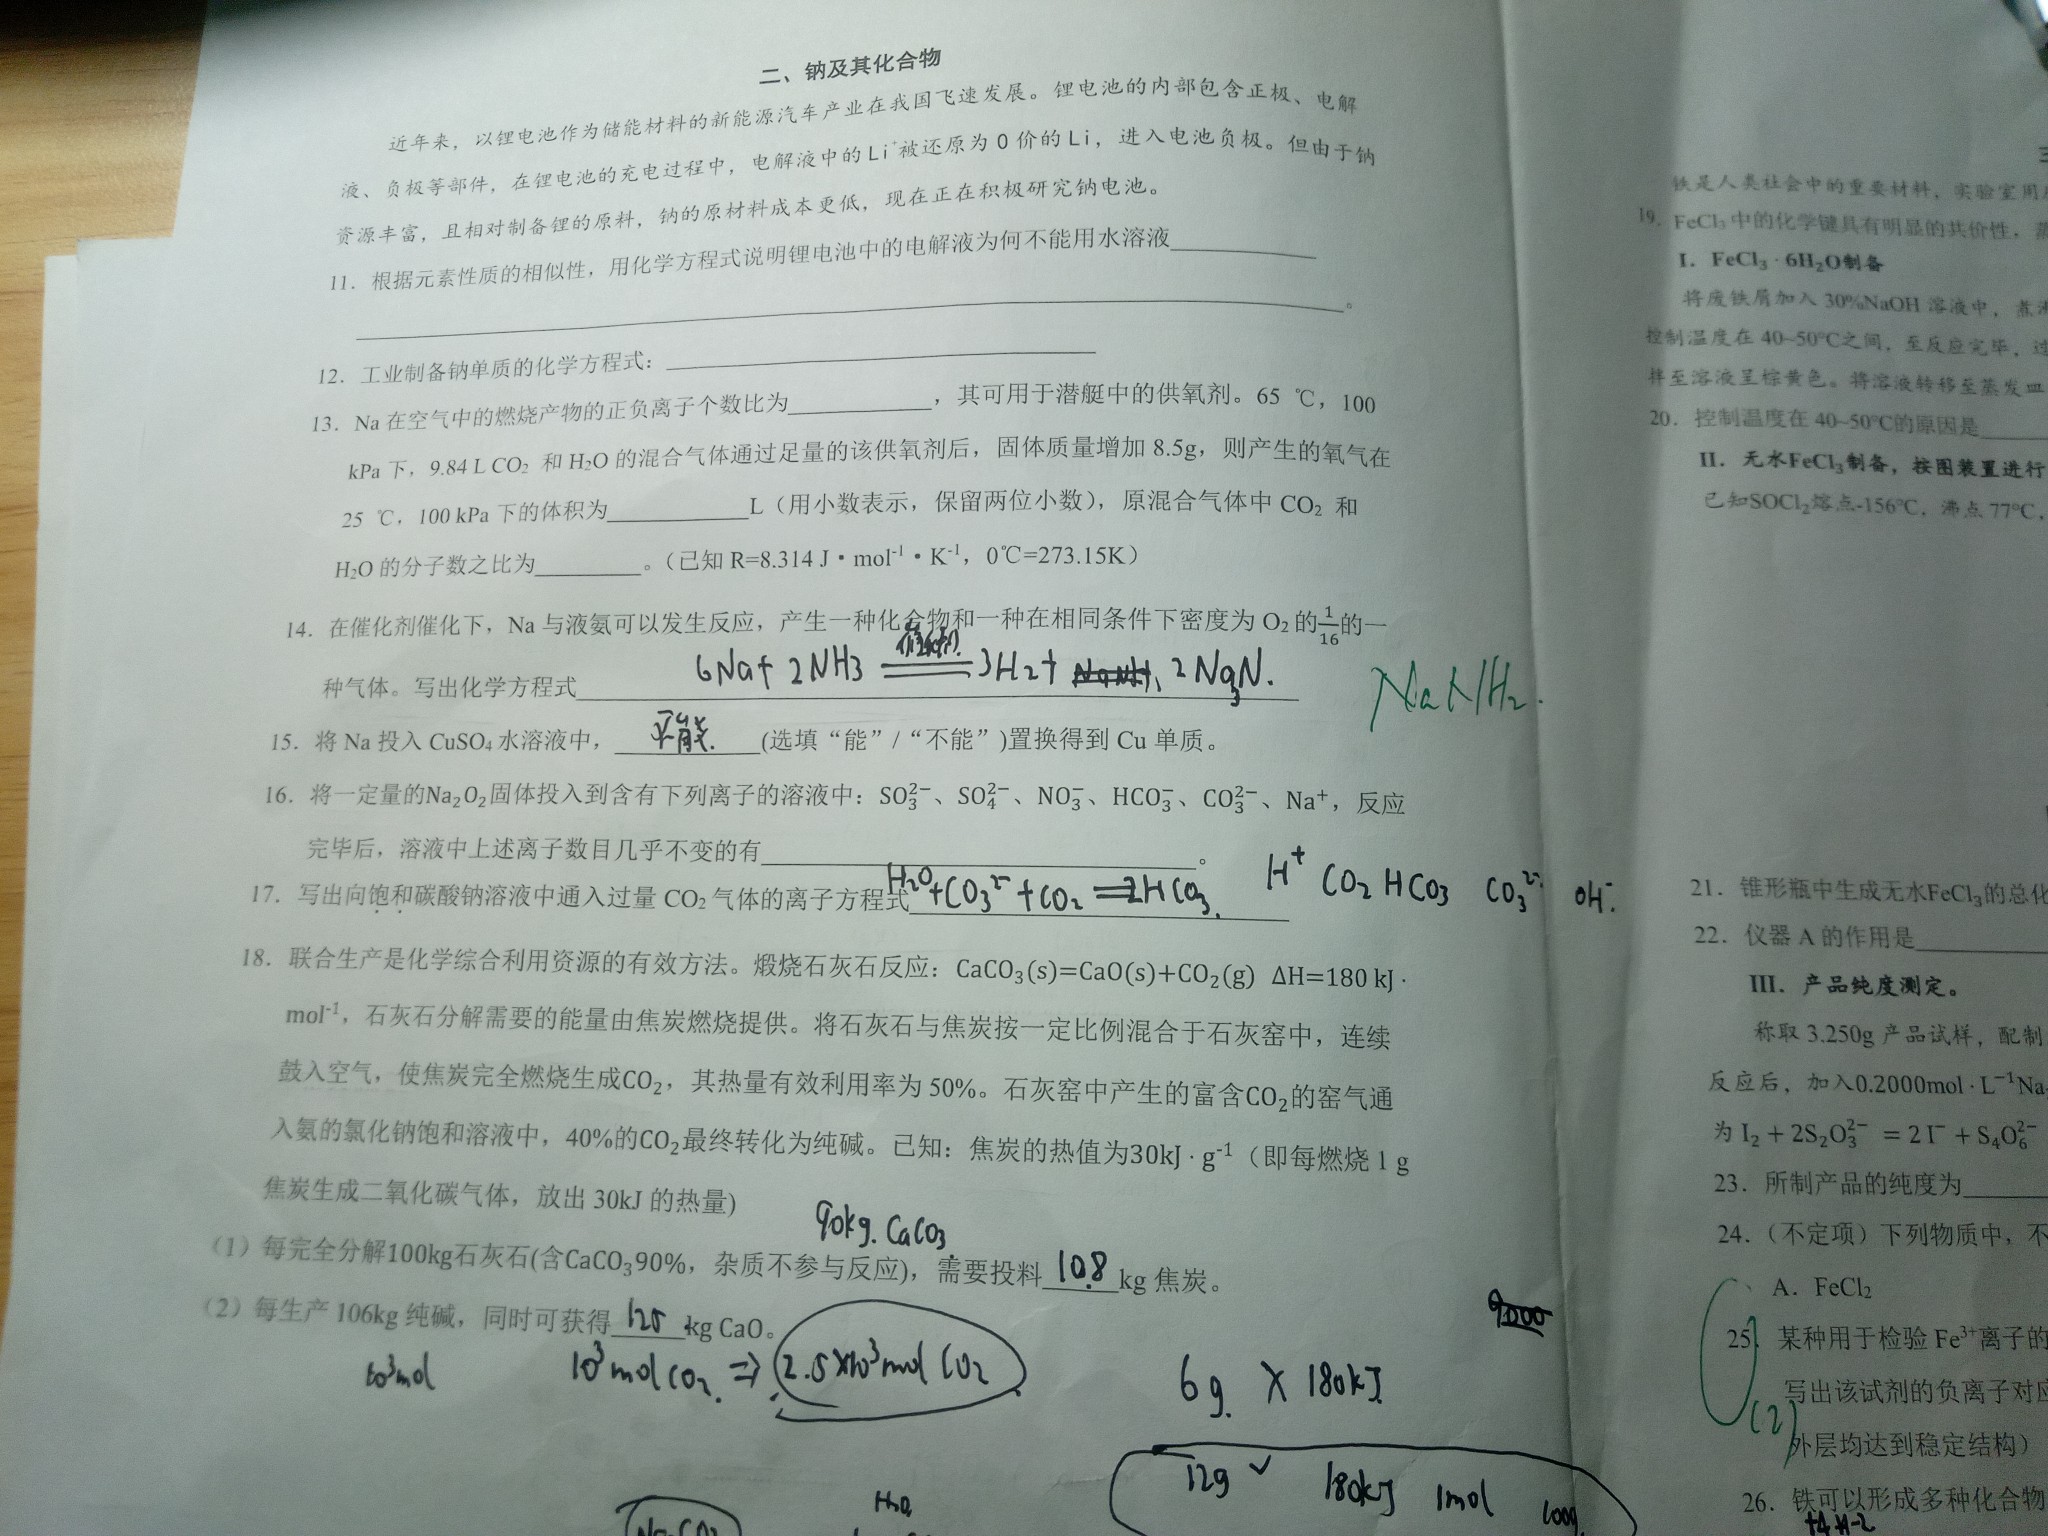 二、钠及其化合物
近年来，以锂电池作为储能材料的新能源汽车产业在我国飞速发展。锂电池的内部包含正极、电解
液、负极等部件，在锂电池的充电过程中，电解液中的Li⁺被还原为 0 价的 Li，进入电池负极。但由于钠
资源丰富，且相对制备锂的原料，钠的原材料成本更低，现在正在积极研究钠电池。
11．根据元素性质的相似性，用化学方程式说明锂电池中的电解液为何不能用水溶液____________
____________。
12．工业制备钠单质的化学方程式：____________
13．Na 在空气中的燃烧产物的正负离子个数比为____________，其可用于潜艇中的供氧剂。65 ℃，100
kPa 下，9.84 L CO₂ 和 H₂O 的混合气体通过足量的该供氧剂后，固体质量增加 8.5g，则产生的氧气在
25 ℃，100 kPa 下的体积为____________L（用小数表示，保留两位小数），原混合气体中 CO₂ 和
H₂O 的分子数之比为________。（已知 R=8.314 J·mol⁻¹·K⁻¹，0℃=273.15K）
14．在催化剂催化下，Na 与液氨可以发生反应，产生一种化合物和一种在相同条件下密度为 O₂ 的1/16的一
种气体。写出化学方程式 6Na+ 2NH3 ══ 3H2+ 2Na3N.
NaNH2.
15．将 Na 投入 CuSO₄ 水溶液中，不能.(选填“能”/“不能”)置换得到 Cu 单质。
16．将一定量的Na₂O₂固体投入到含有下列离子的溶液中：SO₃²⁻、SO₄²⁻、NO₃⁻、HCO₃⁻、CO₃²⁻、Na⁺，反应
完毕后，溶液中上述离子数目几乎不变的有____________。
17．写出向饱和碳酸钠溶液中通入过量 CO₂ 气体的离子方程式 H₂O+CO₃²⁻+CO₂ ══2HCO₃.
H⁺ CO2 HCO3 CO₃²⁻ OH⁻.
18．联合生产是化学综合利用资源的有效方法。煅烧石灰石反应：CaCO₃(s)=CaO(s)+CO₂(g) ΔH=180 kJ·
mol⁻¹，石灰石分解需要的能量由焦炭燃烧提供。将石灰石与焦炭按一定比例混合于石灰窑中，连续
鼓入空气，使焦炭完全燃烧生成CO₂，其热量有效利用率为 50%。石灰窑中产生的富含CO₂的窑气通
入氨的氯化钠饱和溶液中，40%的CO₂最终转化为纯碱。已知：焦炭的热值为30kJ·g⁻¹（即每燃烧 1 g
焦炭生成二氧化碳气体，放出 30kJ 的热量)
90kg. CaCO₃
（1）每完全分解100kg石灰石(含CaCO₃90%，杂质不参与反应)，需要投料 10.8 kg 焦炭。
（2）每生产 106kg 纯碱，同时可获得 125 kg CaO。
10³mol 10³mol CO₂. ⇒ 2.5×10³mol CO₂
6g. × 180kJ
12g ✓ 180kJ 1mol 100g
三
铁是人类社会中的重要材料，实验室用
19．FeCl₃ 中的化学键具有明显的共价性，蒸
I．FeCl₃·6H₂O制备
将废铁屑加入 30%NaOH 溶液中，煮沸
控制温度在 40~50℃之间，至反应完毕，过
拌至溶液呈棕黄色。将溶液转移至蒸发皿
20．控制温度在 40~50℃的原因是
II．无水FeCl₃制备，按图装置进行
已知SOCl₂熔点-156℃，沸点 77℃，
21．锥形瓶中生成无水FeCl₃的总化
22．仪器 A 的作用是
III．产品纯度测定。
称取 3.250g 产品试样，配制
反应后，加入0.2000mol·L⁻¹Na
为 I₂ + 2S₂O₃²⁻ = 2 I⁻ + S₄O₆²⁻
23．所制产品的纯度为
24．（不定项）下列物质中，不
A．FeCl₂
25．某种用于检验 Fe³⁺离子的
写出该试剂的负离子对应
(2)
外层均达到稳定结构）
26．铁可以形成多种化合物